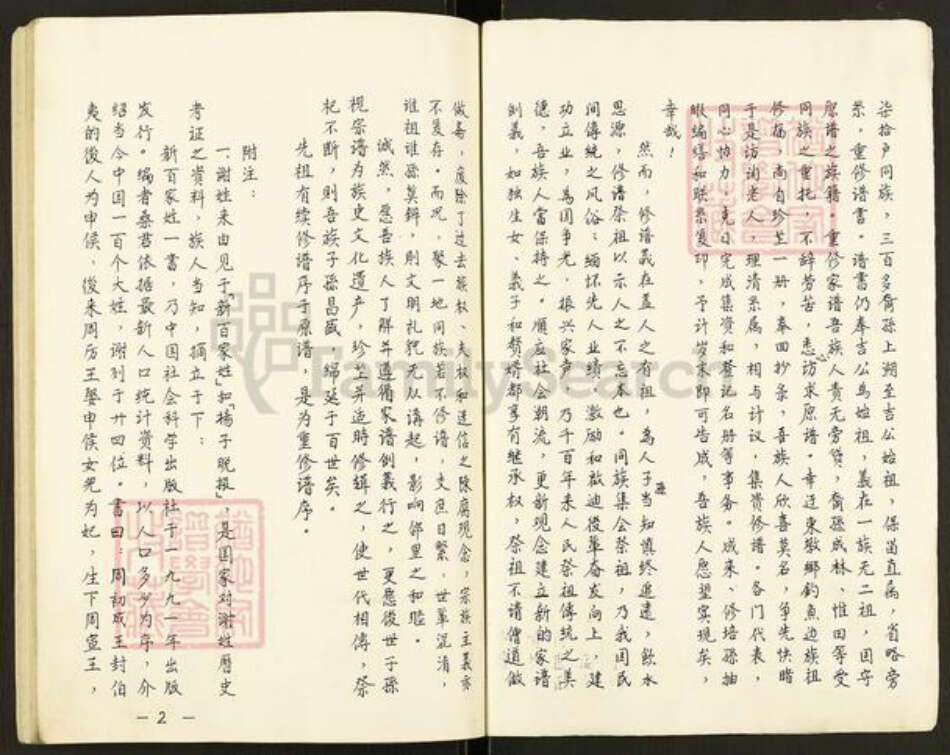 柒拾户同族，三百多裔孙上朔至吉公始祖，保留直属，省略旁
系，重修谱书。谱书仍奉吉公為始祖，義在一族无二祖，因守
原谱之族籍。重修家谱吾族人责无旁贷，裔孫成林、惟田等受
同族之重托，不辞劳苦，悉心访求原谱。幸近東墩鄉釣魚边族祖
修福，尚自珍芏一册，奉回抄录，吾族人欣喜莫名，争先快睹
于是访询老人，理清系属，相与计议，集资修谱。各门代表，
同心协力，克日完成集资和登记名册等事务。成来、修培孫抽
暇编缮和联系复印，予计岁末即可告成，吾族人愿望实现矣，
幸哉！
然而，修谱義在盖人之有祖，為人子孫当知慎终追遠，飲水
思源，修谱祭祖以示人之不忘本也。同族集会祭祖，乃我国民
间傳統之风俗；缅怀先人业绩，激励和啟迪後輩奋发向上，建
功立业，為国争光，振兴家声，乃千百年来人民祭祖傳统之美
德，吾族人當保持之。順应社会朝流，更新现念建立新的家谱
創義，如独生女、義子和贅婿都享有继承权，祭祖不请僧道做
做斋，废除了过去族权、夫权和迷信之陳腐现念，宗族主義亦
不复存。而况，聚一地同族若不修谱，支庶日繁，世輩混淆，
谁祖谁孫莫辩，則文明礼貌无从講起，影响邻里之和睦。
诚然，愿吾族人了解并遵循家谱創義行之，更愿後世子孫
視宗谱为族史文化遗产，珍芏并适時修緝之，使世代相傳，祭
杞不断，則吾族子孫昌盛，绵延于百世矣。
先祖有续修谱序于原谱，是为重修谱序。
附注：
一、谢姓来由见于「新百家姓」和「揚子晚报」，是国家对谢姓歷史
考证之资料，族人当知，摘立于下：
新百家姓一書，乃中国社会科学出版社于一九九一年出版
发行。编者桑君依据最新人口统计资料，以人口多少为序，介
绍当今中国一百个大姓，谢列于廿四位。書曰：周初成王封伯
夷的後人为申侯，後来周厉王娶申侯女兒为妃，生下周宣王，
— 2 —
FamilySearch